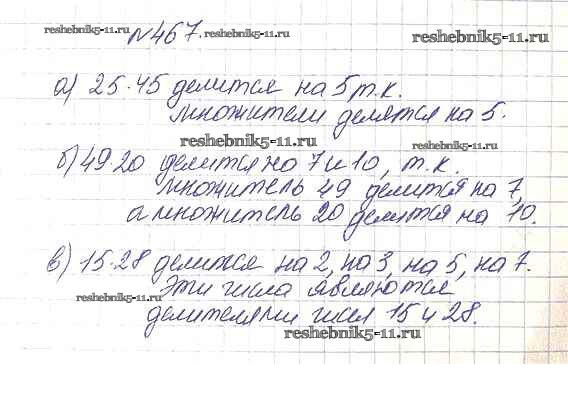 №467.
reshebnik5-11.ru reshebnik5-11.ru reshebnik5-11.ru
а) 25·45 делится на 5 т.к.
множители делятся на 5.
reshebnik5-11.ru reshebnik5-11.ru
б) 49·20 делится на 7 и 10, т.к.
множитель 49 делится на 7,
а множитель 20 делится на 10.
в) 15·28 делится на 2, на 3, на 5, на 7.
Эти числа являются
reshebnik5-11.ru
делителями чисел 15 и 28.
reshebnik5-11.ru